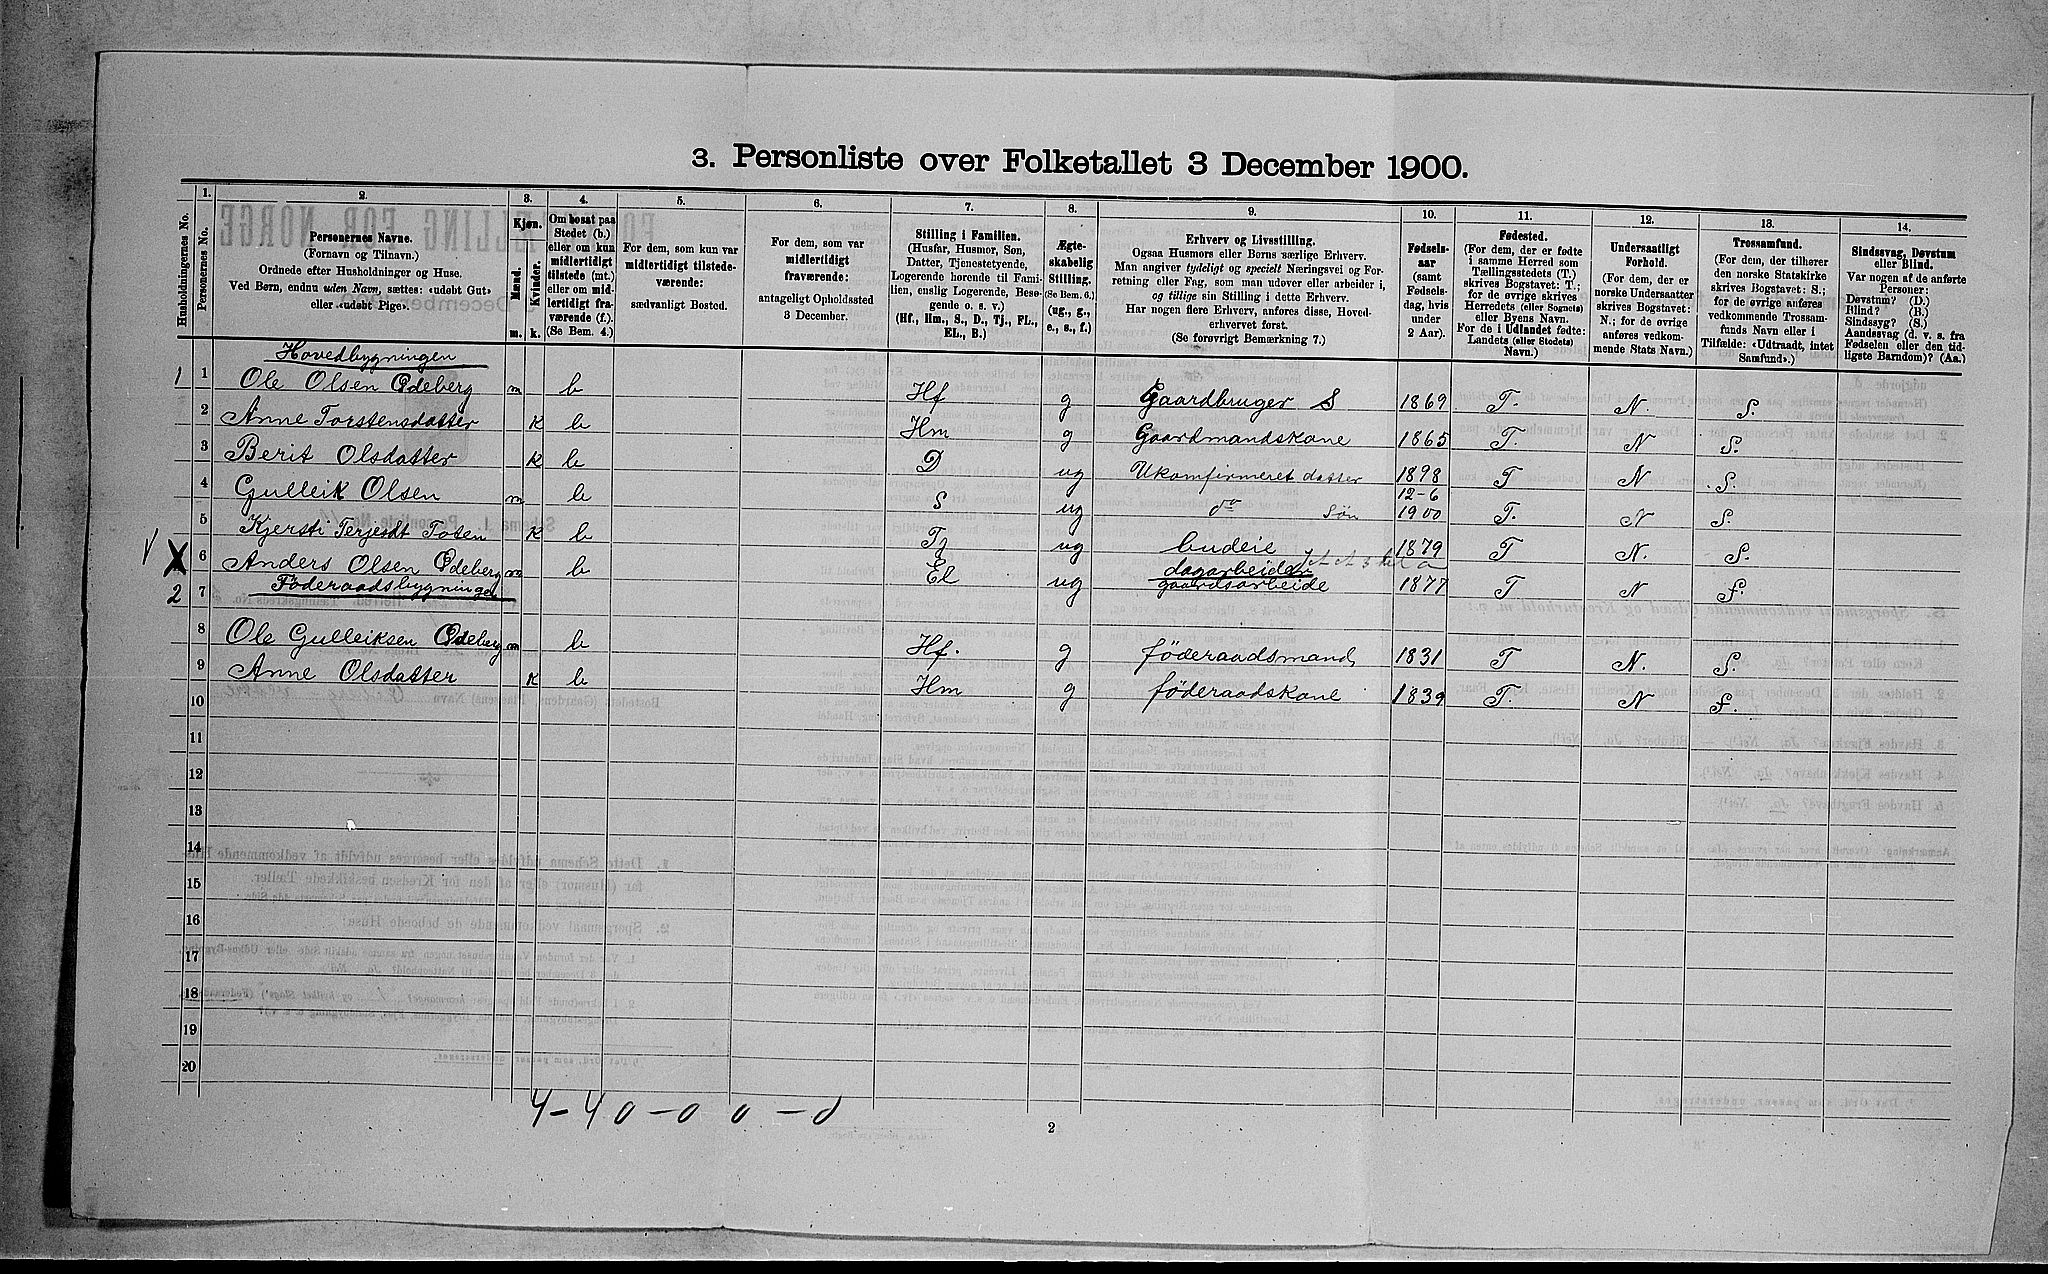 3. Personliste over Folketallet 3 December 1900.
Husholdningernes No.
1.
Personernes No.
2.
Personernes Navne.
(Fornavn og Tilnavn.)
Ordnede efter Husholdninger og Huse.
Ved Børn, endnu uden Navn, sættes: «udøbt Gut»
eller «udøbt Pige».
3.
Kjøn.
Mænd.
m.
Kvinder.
k.
4.
Om bosat paa
Stedet (b.)
eller om kun
midlertidigt
tilstede (mt.)
eller om mid-
lertidigt fra-
værende (f.).
(Se Bem. 4.)
5.
For dem, som kun var
midlertidigt tilstede-
værende:
sædvanligt Bosted.
6.
For dem, som var
midlertidigt
fraværende:
antageligt Opholdssted
3 December.
7.
Stilling i Familien.
(Husfar, Husmor, Søn,
Datter, Tjenestetyende,
Logerende hørende til Fami-
lien, enslig Logerende, Besø-
gende o. s. v.)
(Hf., Hm., S., D., Tj., FL.,
EL., B.)
8.
Ægte-
skabelig
Stilling.
(Se Bem. 6.)
(ug., g.,
e., s., f.)
9.
Erhverv og Livsstilling.
Ogsaa Husmors eller Børns særlige Erhverv.
Man angiver tydeligt og specielt Næringsvei og For-
retning eller Fag, som man udøver eller arbeider i,
og tillige sin Stilling i dette Erhverv.
Har nogen flere Erhverv, anføres disse, Hoved-
erhvervet først.
(Se forøvrigt Bemærkning 7.)
10.
Fødsels-
aar
(samt
Fødsels-
dag, hvis
under
2 Aar).
11.
Fødested.
(For dem, der er fødte
i samme Herred som
Tællingsstedets (T.)
skrives Bogstavet: T.;
for de øvrige skrives
Herredets (eller Sognets)
eller Byens Navn.
For de i Udlandet fødte:
Landets (eller Stedets)
Navn.)
12.
Undersaatligt
Forhold.
(For dem, der er
norske Undersaatter
skrives Bogstavet:
N.; for de øvrige
anføres vedkom-
mende Stats Navn.)
13.
Trossamfund.
(For dem, der tilhører
den norske Statskirke
skrives Bogstavet: S.;
for de øvrige anføres
vedkommende Trossam-
funds Navn eller i
Tilfælde: «Udtraadt, intet
Samfund».)
14.
Sindssvag, Døvstum
eller Blind.
Var nogen af de anførte
Personer:
Døvstum? (D.)
Blind? (B.)
Sindssyg? (S.)
Aandssvag (d. v. s. fra
Fødselen eller den tid-
ligste Barndom)? (Aa.)
Hovedbygningen
1 1 Ole Olsen Ødeberg m b Hf g Gaardbruger S 1869 T. N. S.
2 Anne Torstensdatter k b Hm g Gaardmandskone 1865 T. N S.
3 Berit Olsdatter k b D ug Ukomfirmeret datter 1898 T N S.
4 Gulleik Olsen m b S ug do Søn 12-6 1900 T. N S.
5 Kjersti Terjesdt Toten k b Tj ug budeie 1879 T N. S.
6 Anders Olsen Ødeberg m b El ug dagarbeide gaardsarbeide 1877 T N S.
2 7 Føderaadsbygningen
8 Ole Gulleiksen Ødeberg m b Hf. g føderaadsmand 1831 T N. S.
9 Anne Olsdatter k b Hm g føderaadskone 1839 T. N S.
10
11
12
13
14
15
16
17
18
19
20
4-4 0-0 0-0
2